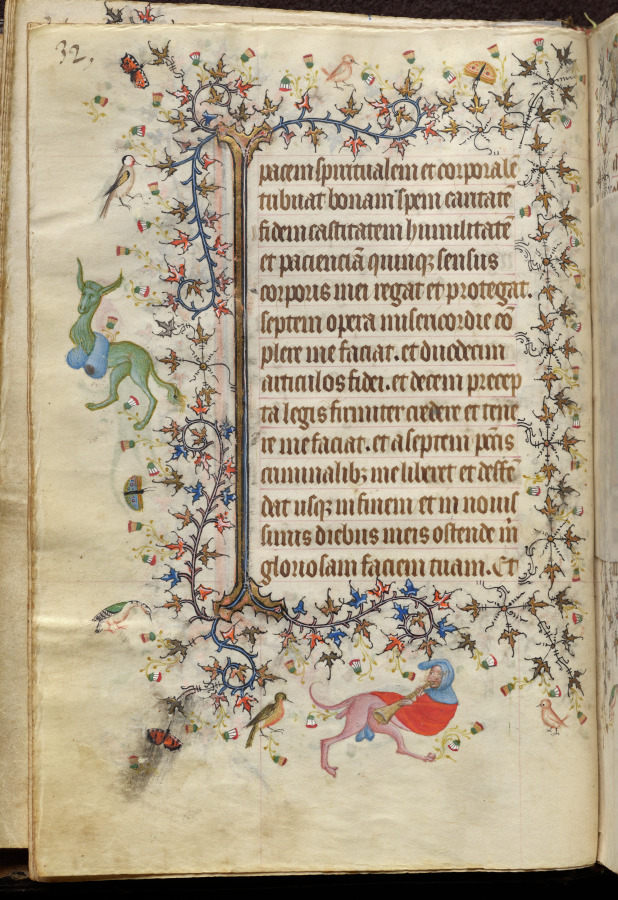 32.
pacem spiritualem et corporale
tribuat bonam spem caritatē
fidem castitatem humilitatē
et pacienciā quinqꝫ sensus
corporis mei regat et protegat.
septem opera misericordie cō
plere me faciat. et duodecim
articulos fidei. et decem precep
ta legis firmiter credere et tene
re me faciat. et a septem pctīs
criminalibꝫ me liberet et deffē
dat usqꝫ in finem et in nouis
simis diebus meis ostende m̄
gloriosam faciem tuam. Et